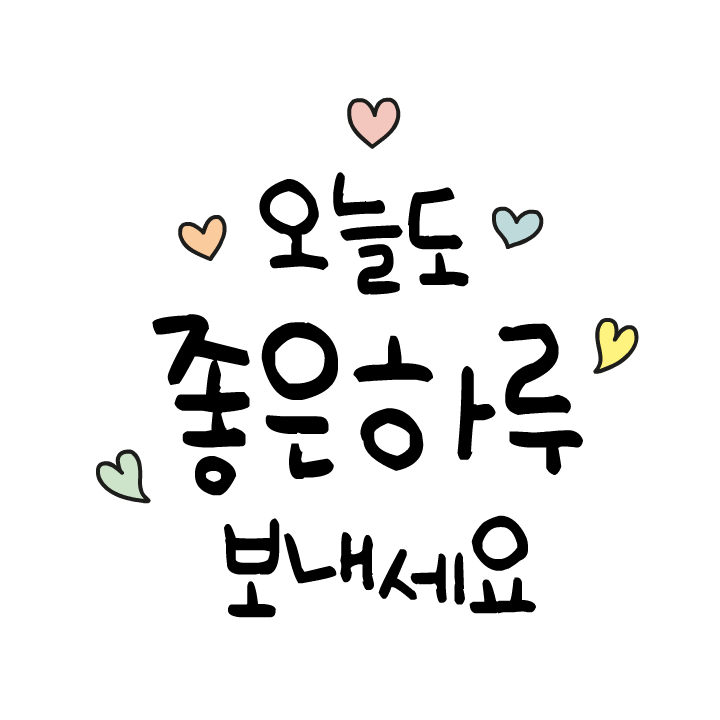 오늘도
좋은하루
보내세요